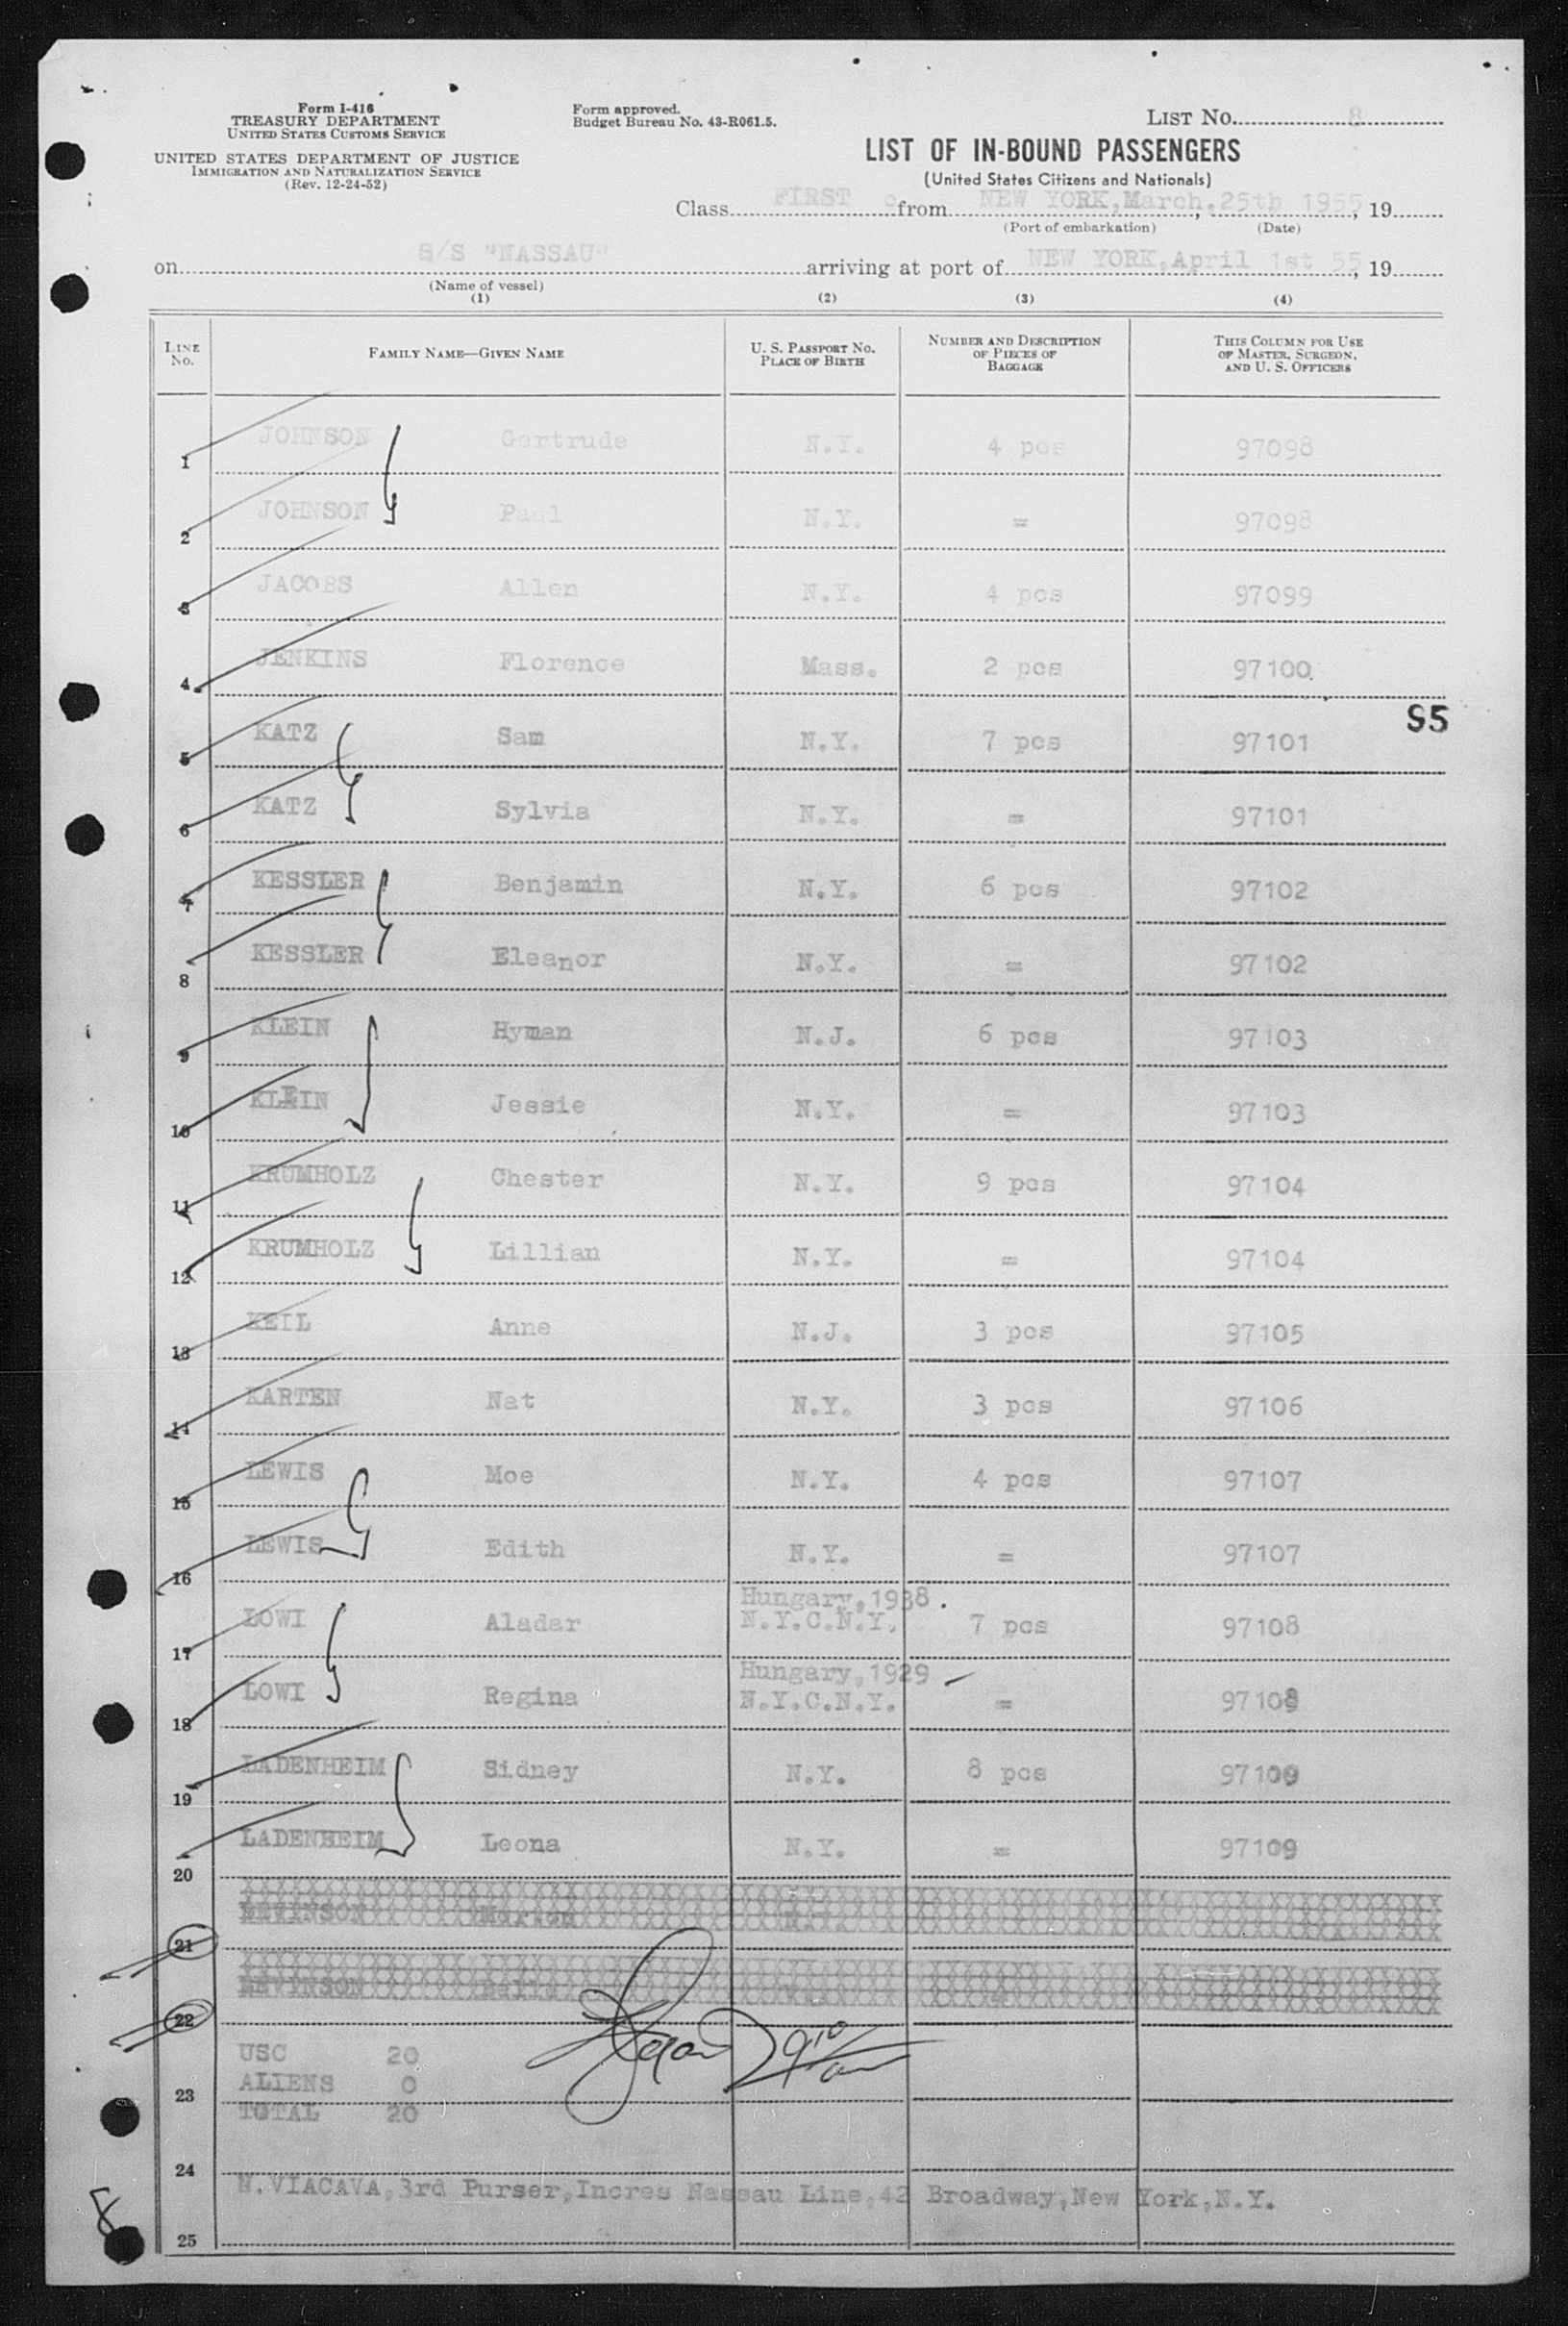 Form I-416
TREASURY DEPARTMENT
UNITED STATES CUSTOMS SERVICE
UNITED STATES DEPARTMENT OF JUSTICE
IMMIGRATION AND NATURALIZATION SERVICE
(Rev. 12-24-52)
Form approved.
Budget Bureau No. 43-R061.5.
LIST NO. 8
LIST OF IN-BOUND PASSENGERS
(United States Citizens and Nationals)
Class FIRST c from NEW YORK, March, 25th 1955, 19
(Port of embarkation) (Date)
on S/S "NASSAU" arriving at port of NEW YORK, April 1st 55, 19
(Name of vessel)
(1) (2) (3) (4)
LINE NO. FAMILY NAME—GIVEN NAME U. S. PASSPORT NO. PLACE OF BIRTH NUMBER AND DESCRIPTION OF PIECES OF BAGGAGE THIS COLUMN FOR USE OF MASTER, SURGEON, AND U. S. OFFICERS
1 JOHNSON Gertrude N.Y. 4 pcs 97098
2 JOHNSON Paul N.Y. = 97098
3 JACOBS Allen N.Y. 4 pcs 97099
4 JENKINS Florence Mass. 2 pcs 97100
95
5 KATZ Sam N.Y. 7 pcs 97101
6 KATZ Sylvia N.Y. = 97101
7 KESSLER Benjamin N.Y. 6 pcs 97102
8 KESSLER Eleanor N.Y. = 97102
9 KLEIN Hyman N.J. 6 pcs 97103
10 KLEIN Jessie N.Y. = 97103
11 KRUMHOLZ Chester N.Y. 9 pcs 97104
12 KRUMHOLZ Lillian N.Y. = 97104
13 KEIL Anne N.J. 3 pcs 97105
14 KARTEN Nat N.Y. 3 pcs 97106
15 LEWIS Moe N.Y. 4 pcs 97107
16 LEWIS Edith N.Y. = 97107
Hungary, 1938.
17 LOWI Aladar N.Y.C.N.Y. 7 pcs 97108
Hungary, 1929
18 LOWI Regina N.Y.C.N.Y. = 97108
19 LADENHEIM Sidney N.Y. 8 pcs 97109
20 LADENHEIM Leona N.Y. = 97109
21
22
USC 20
23 ALIENS 0
TOTAL 20
24
N. VIACAVA, 3rd Purser, Incres Nassau Line, 42 Broadway, New York, N.Y.
25
8